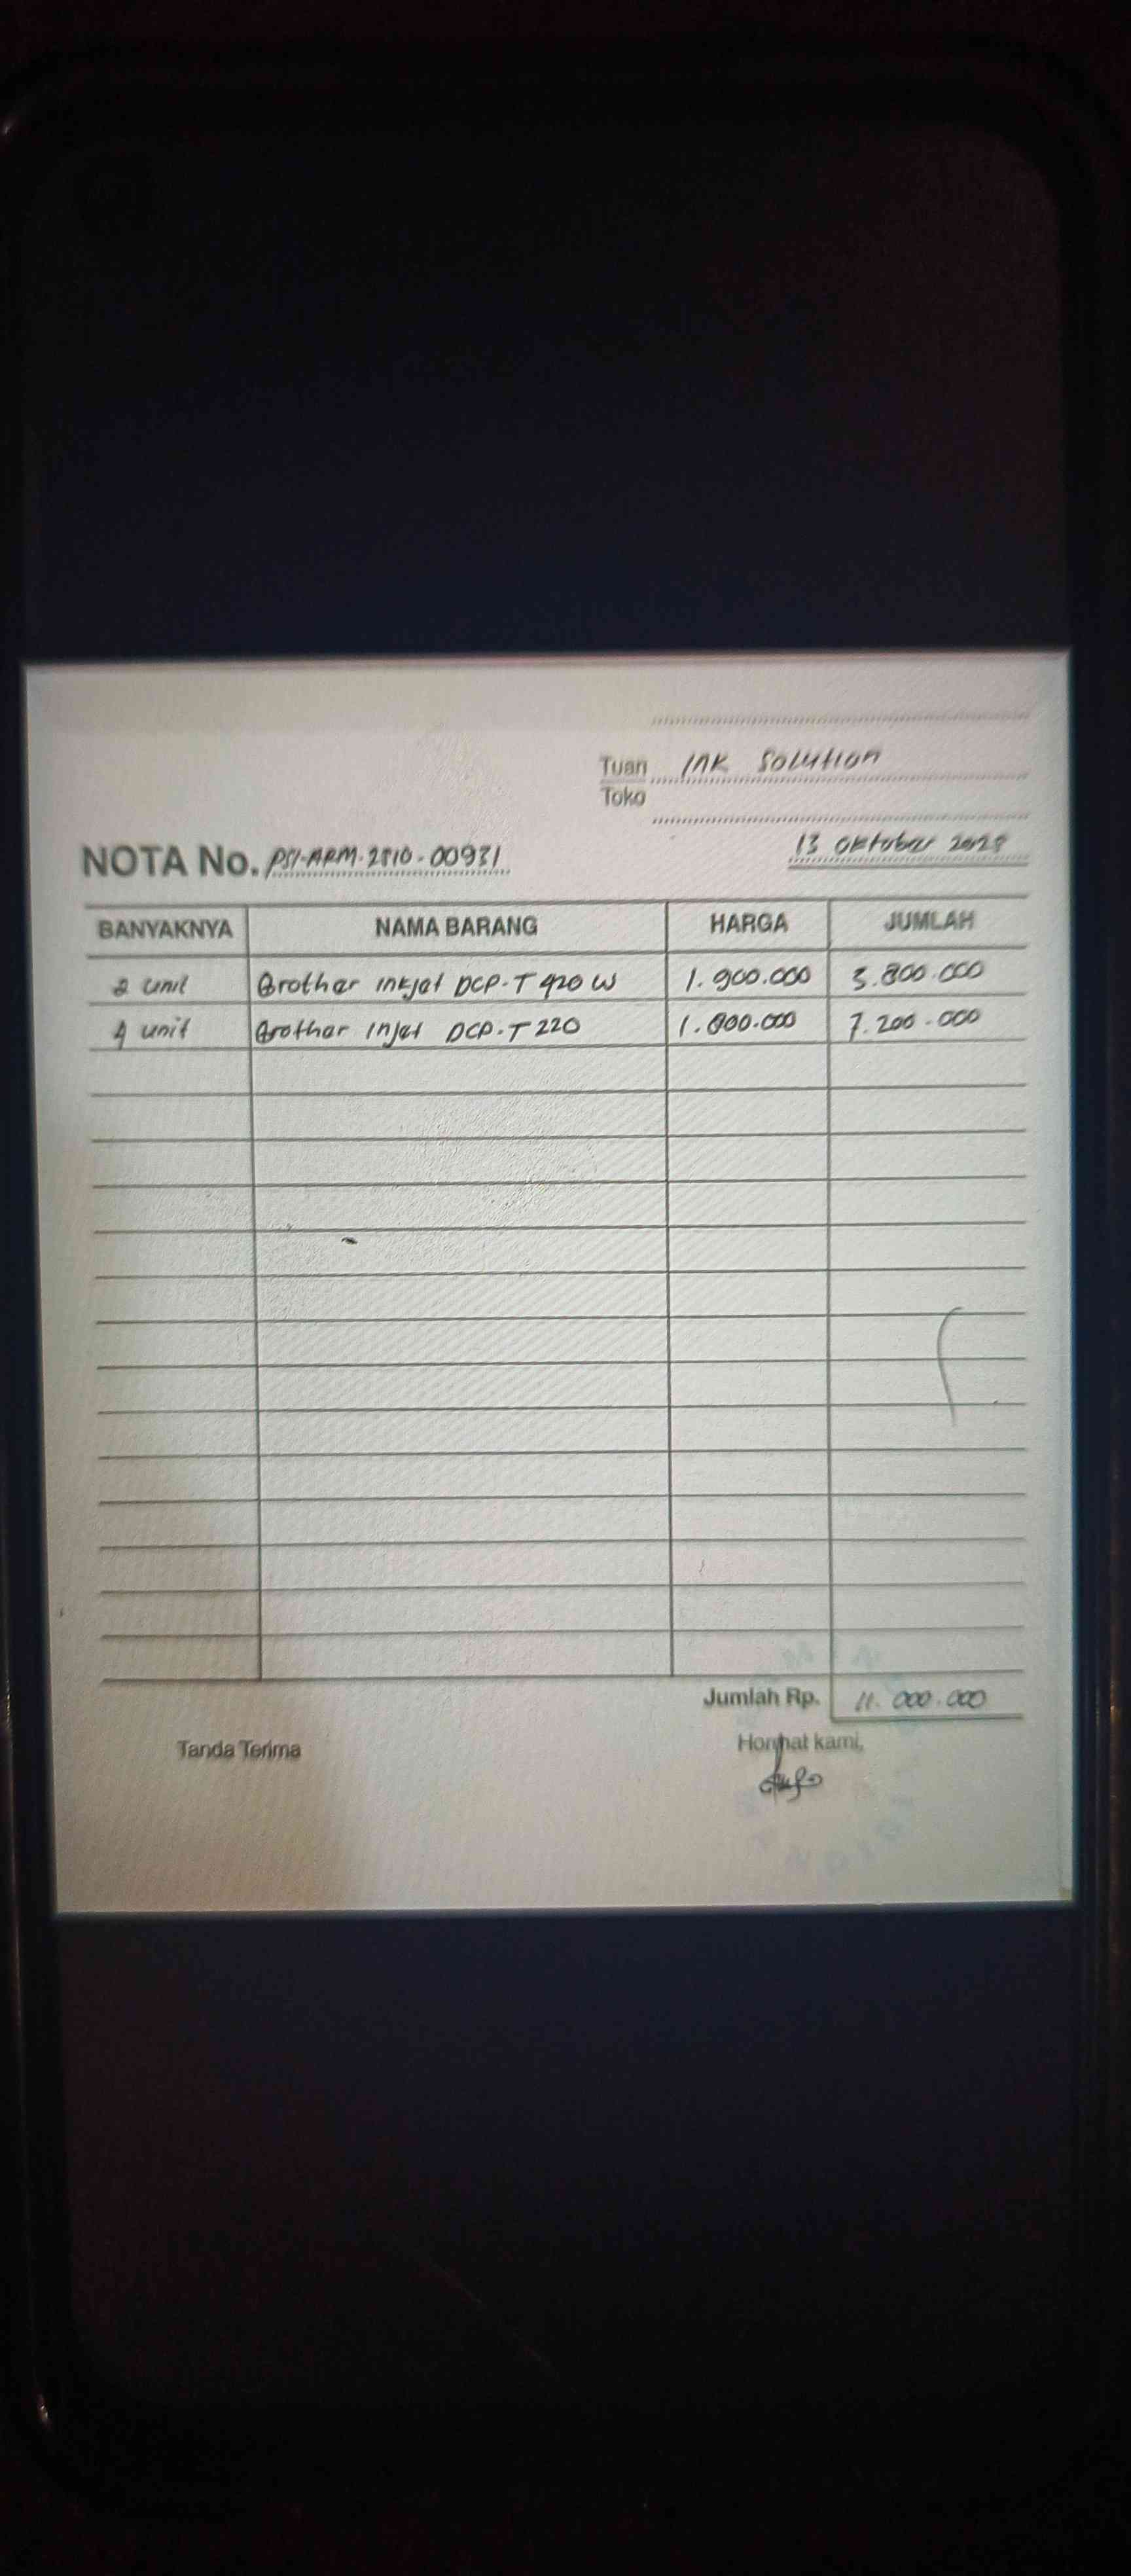 Tuan Ink Solution
Toko
NOTA No. PSI-ARM-2510-00931 13 Oktober
BANYAKNYA NAMA BARANG HARGA JUMLAH
2 unit Brother inkjet DCP-T 420 W 1.900.000 3.800.000
4 unit Brother injet DCP-T 220 1.800.000 7.200.000
Jumlah Rp. 11.000.000
Tanda Terima Hormat kami,